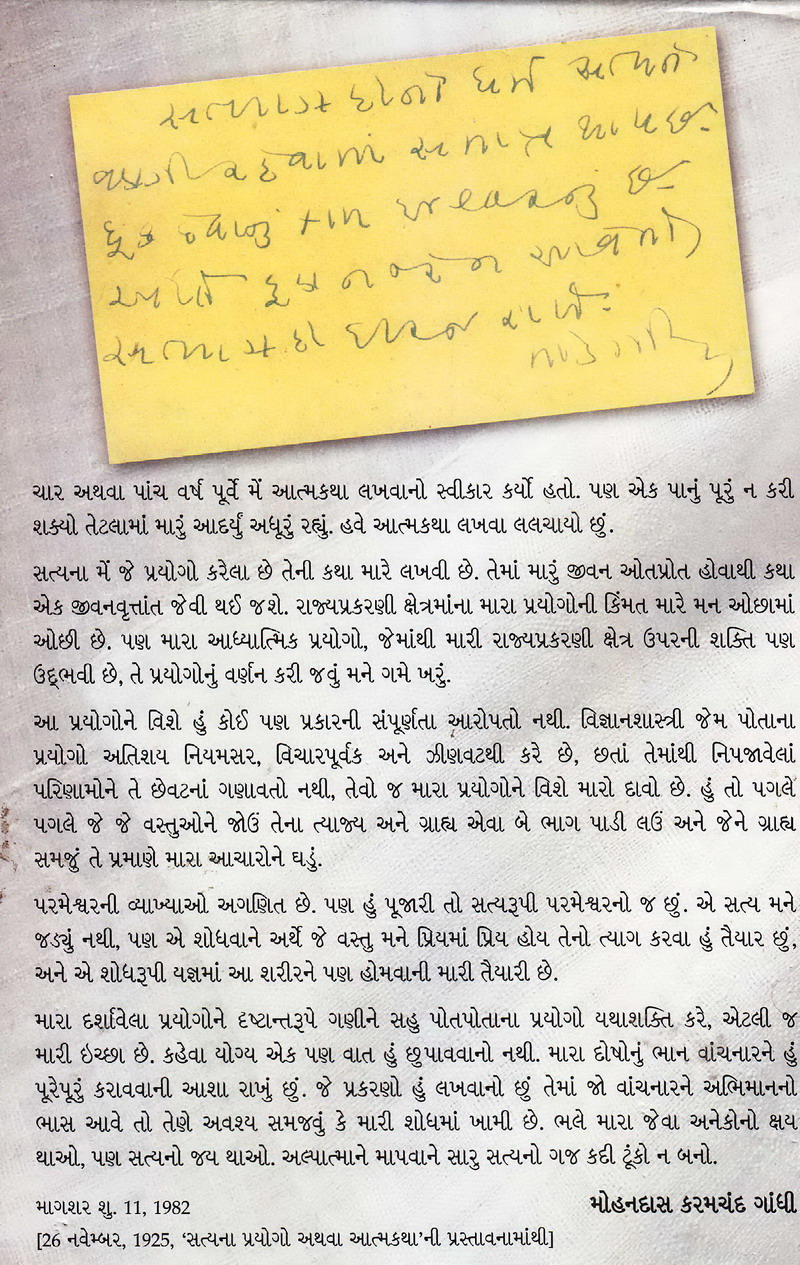 સત્યાગ્રહીનો ધર્મ સત્યને
વળગી રહેવામાં સમાપ્ત થાય છે.
અસત્યાગ્રહી ધીરજ રાખે.
ચાર અથવા પાંચ વર્ષ પૂર્વે મેં આત્મકથા લખવાનો સ્વીકાર કર્યો હતો. પણ એક પાનું પૂરું ન કરી
શક્યો તેટલામાં મારું આદર્યું અધૂરું રહ્યું. હવે આત્મકથા લખવા લલચાયો છું.
સત્યના મેં જે પ્રયોગો કરેલા છે તેની કથા મારે લખવી છે. તેમાં મારું જીવન ઓતપ્રોત હોવાથી કથા
એક જીવનવૃત્તાંત જેવી થઈ જશે. રાજ્યપ્રકરણી ક્ષેત્રમાંના મારા પ્રયોગોની કિંમત મારે મન ઓછામાં
ઓછી છે. પણ મારા આધ્યાત્મિક પ્રયોગો, જેમાંથી મારી રાજ્યપ્રકરણી ક્ષેત્ર ઉપરની શક્તિ પણ
ઉદ્ભવી છે, તે પ્રયોગોનું વર્ણન કરી જવું મને ગમે ખરું.
આ પ્રયોગોને વિશે હું કોઈ પણ પ્રકારની સંપૂર્ણતા આરોપતો નથી. વિજ્ઞાનશાસ્ત્રી જેમ પોતાના
પ્રયોગો અતિશય નિયમસર, વિચારપૂર્વક અને ઝીણવટથી કરે છે, છતાં તેમાંથી નિપજાવેલાં
પરિણામોને તે છેવટનાં ગણાવતો નથી, તેવો જ મારા પ્રયોગોને વિશે મારો દાવો છે. હું તો પગલે
પગલે જે જે વસ્તુઓને જોઉં તેના ત્યાજ્ય અને ગ્રાહ્ય એવા બે ભાગ પાડી લઉં અને જેને ગ્રાહ્ય
સમજું તે પ્રમાણે મારા આચારોને ઘડું.
પરમેશ્વરની વ્યાખ્યાઓ અગણિત છે. પણ હું પૂજારી તો સત્યરૂપી પરમેશ્વરનો જ છું. એ સત્ય મને
જડ્યું નથી, પણ એ શોધવાને અર્થે જે વસ્તુ મને પ્રિયમાં પ્રિય હોય તેનો ત્યાગ કરવા હું તૈયાર છું,
અને એ શોધરૂપી યજ્ઞમાં આ શરીરને પણ હોમવાની મારી તૈયારી છે.
મારા દર્શાવેલા પ્રયોગોને દૃષ્ટાન્તરૂપે ગણીને સહુ પોતપોતાના પ્રયોગો યથાશક્તિ કરે, એટલી જ
મારી ઇચ્છા છે. કહેવા યોગ્ય એક પણ વાત હું છુપાવવાનો નથી. મારા દોષોનું ભાન વાંચનારને હું
પૂરેપૂરું કરાવવાની આશા રાખું છું. જે પ્રકરણો હું લખવાનો છું તેમાં જો વાંચનારને અભિમાનનો
ભાસ આવે તો તેણે અવશ્ય સમજવું કે મારી શોધમાં ખામી છે. ભલે મારા જેવા અનેકોનો ક્ષય
થાઓ, પણ સત્યનો જય થાઓ. અલ્પાત્માને માપવાને સારુ સત્યનો ગજ કદી ટૂંકો ન બનો.
માગશર શુ. 11, 1982
મોહનદાસ કરમચંદ ગાંધી
[26 નવેમ્બર, 1925, ‘સત્યના પ્રયોગો અથવા આત્મકથા’ની પ્રસ્તાવનામાંથી]